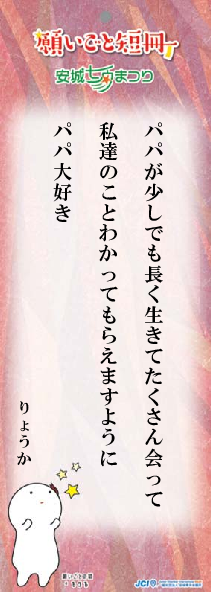 願いごと短冊
安城七夕まつり
パパが少しでも長く生きてたくさん会って
私達のことわかってもらえますように
パパ大好き
りょうか
JCI